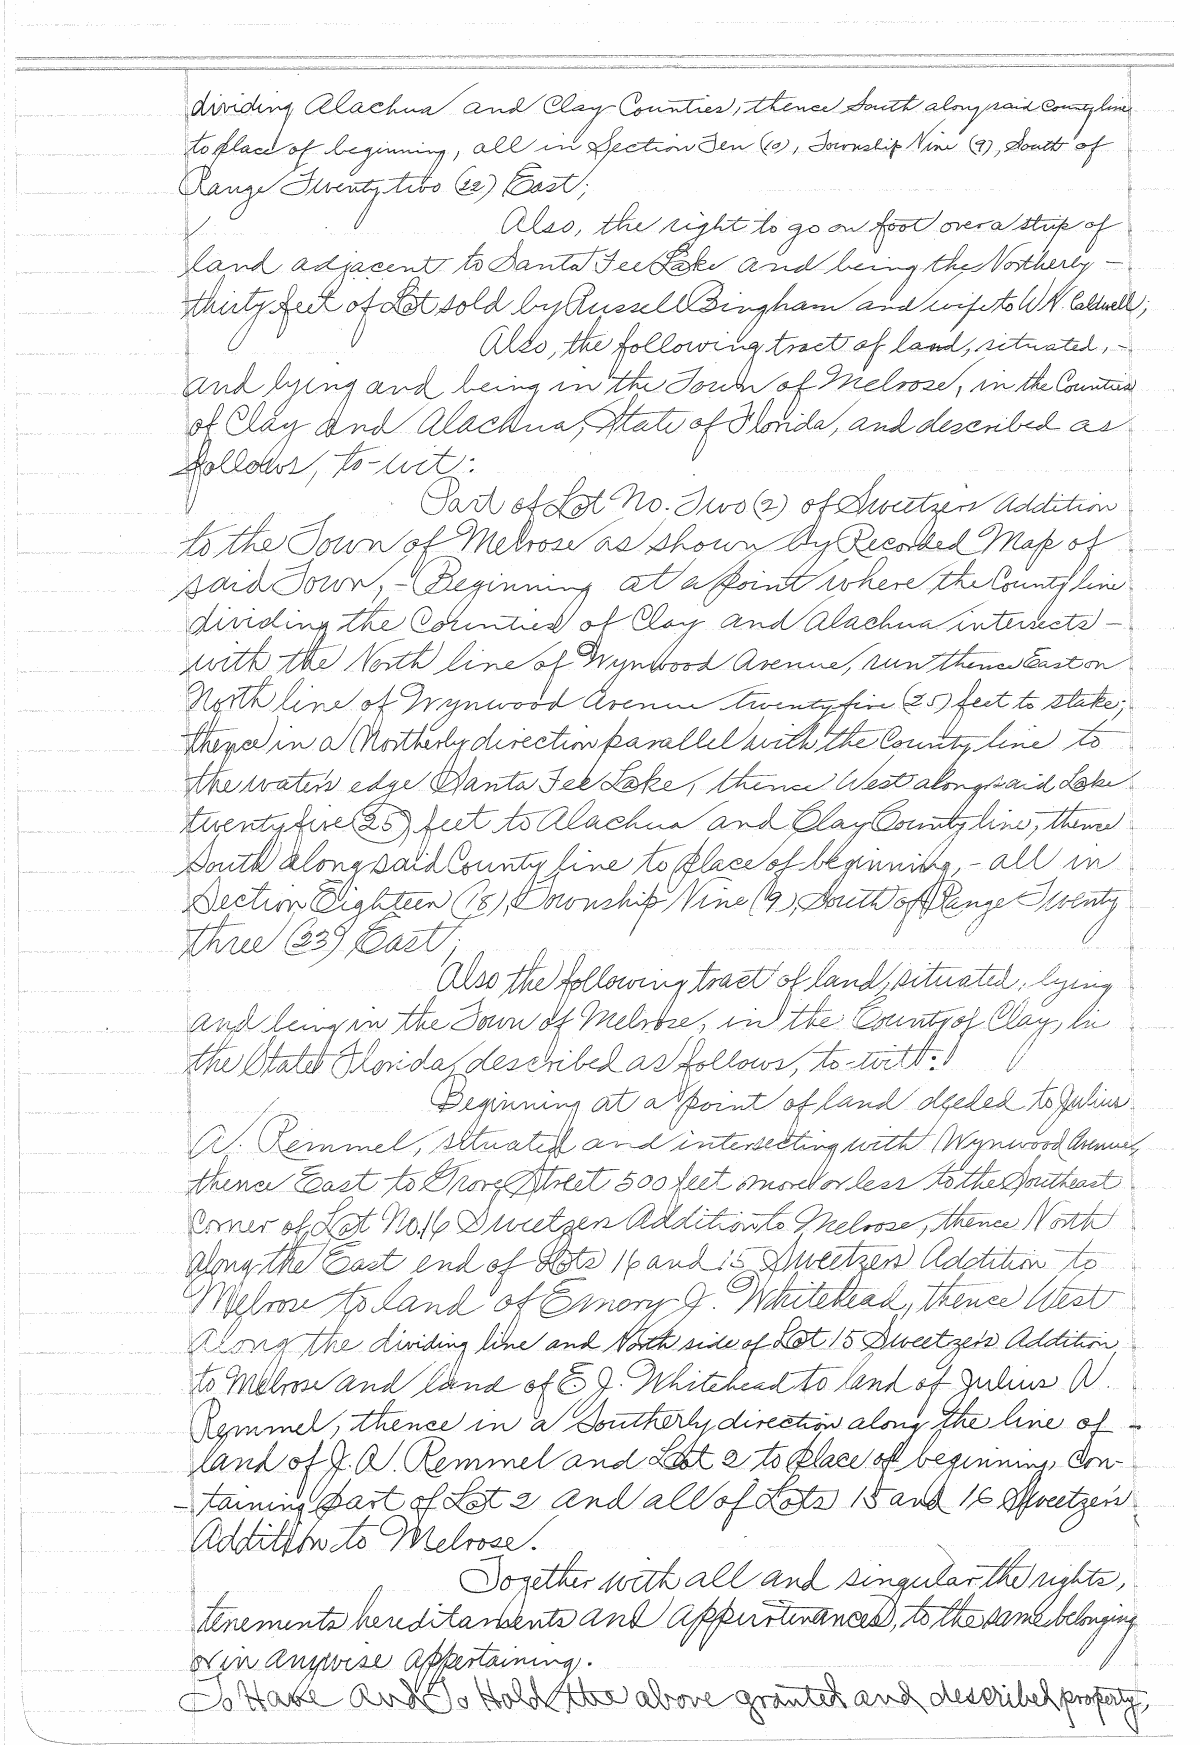 dividing Alachua and Clay Counties, thence South along said County line
to place of beginning, all in Section Ten (10), Township Nine (9), South of
Range Twenty two (22) East;
Also, the right to go on foot over a strip of
land adjacent to Santa Fee Lake and being the Northerly -
thirty feet of Lot sold by Russell Bingham and wife to W. K. Caldwell;
Also, the following tract of land, situated, -
and lying and being in the Town of Melrose, in the Counties
of Clay and Alachua, State of Florida, and described as
follows, to-wit:
Part of Lot No. Two (2) of Sweetzers Addition
to the Town of Melrose as shown by Recorded Map of
said Town, - Beginning at a point where the County line
dividing the Counties of Clay and Alachua intersects -
with the North line of Wynwood Avenue, run thence East on
North line of Wynwood Avenue twenty five (25) feet to stake;
thence in a Northerly direction parallel with the County line to
the water's edge Santa Fee Lake, thence West along said Lake
twenty five (25) feet to Alachua and Clay County line, thence
South along said County line to place of beginning, - all in
Section Eighteen (18), Township Nine (9), South of Range Twenty
three (23) East;
Also the following tract of land, situated, lying
and being in the Town of Melrose, in the County of Clay, in
the State Florida, described as follows, to-wit:
Beginning at a point of land deeded to Julius
A. Remmel, situated and intersecting with Wynwood Avenue,
thence East to Grove Street 500 feet more or less to the Southeast
Corner of Lot No. 16 Sweetzers Addition to Melrose, thence North
along the East end of Lots 16 and 15 Sweetzers Addition to
Melrose to land of Emory J. Whitehead, thence West
along the dividing line and North side of Lot 15 Sweetzers Addition
to Melrose and land of E. J. Whitehead to land of Julius A.
Remmel, thence in a Southerly direction along the line of -
land of J. A. Remmel and Lot 2 to place of beginning, Con-
taining part of Lot 2 and all of Lots 15 and 16 Sweetzer's
Addition to Melrose.
Together with all and singular the rights,
tenements hereditaments and appurtenances, to the same belonging
or in anywise appertaining.
To Have and To Hold the above granted and described property,